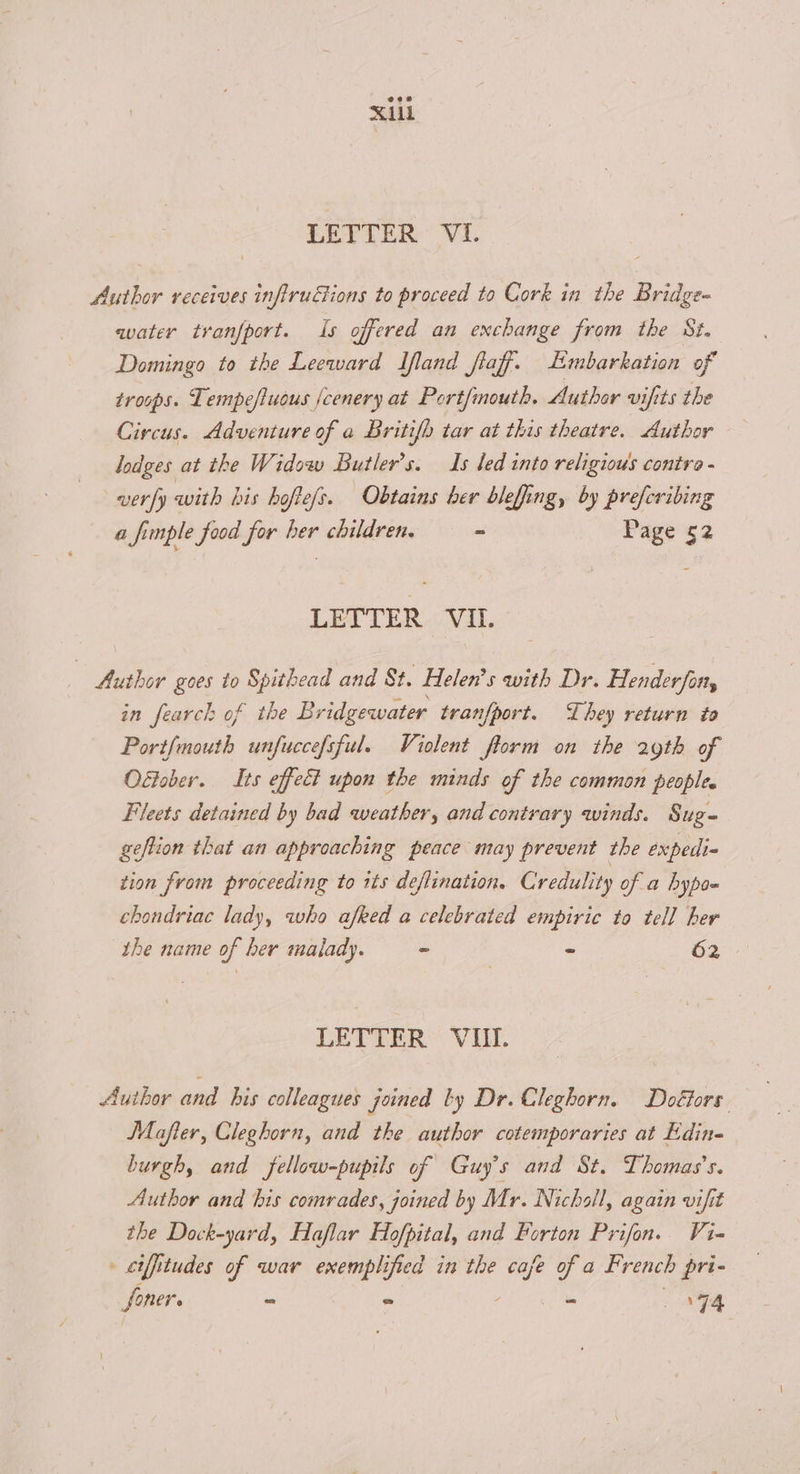 xiii
LETTER VI.
Author receives inſtructions to proceed to Cork in the Bridge-
water tranſport. Is offered an exchange from the St.
Domingo to the Leeward Iſland ſtaff. Embarkation of
troops. Tempeſtuous ſcenery at Portſmouth. Author viſits the
Circus. Adventure of a Britiſh tar at this theatre. Author
lodges at the Widow Butler's. Is led into religious contro-
verſy with his hoſteſs. Obtains her bleſſing, by preſcribing
a ſimple food for her children. - Page 52
LETTER VII.
Author goes to Spithead and St. Helen's with Dr. Henderſon,
in ſearch of the Bridgewater tranſport. They return to
Portſmouth unſucceſsful. Violent ſtorm on the 29th of
October. Its effect upon the minds of the common people.
Fleets detained by bad weather, and contrary winds. Sug-
geſtion that an approaching peace may prevent the expedi-
tion from proceeding to its deſtination. Credulity of a hypo-
chondriac lady, who aſked a celebrated empiric to tell her
the name of her malady. - - 62
LETTER VIII.
Author and his colleagues joined by Dr. Cleghorn. Doctors
Maſter, Cleghorn, and the author cotemporaries at Edin-
burgh, and fellow-pupils of Guy's and St. Thomas's.
Author and his comrades, joined by Mr. Nicholl, again viſit
the Dock-yard, Haſlar Hoſpital, and Forton Priſon. Vi-
ciſſitudes of war exemplified in the caſe of a French pri-
ſoner. - - - 74